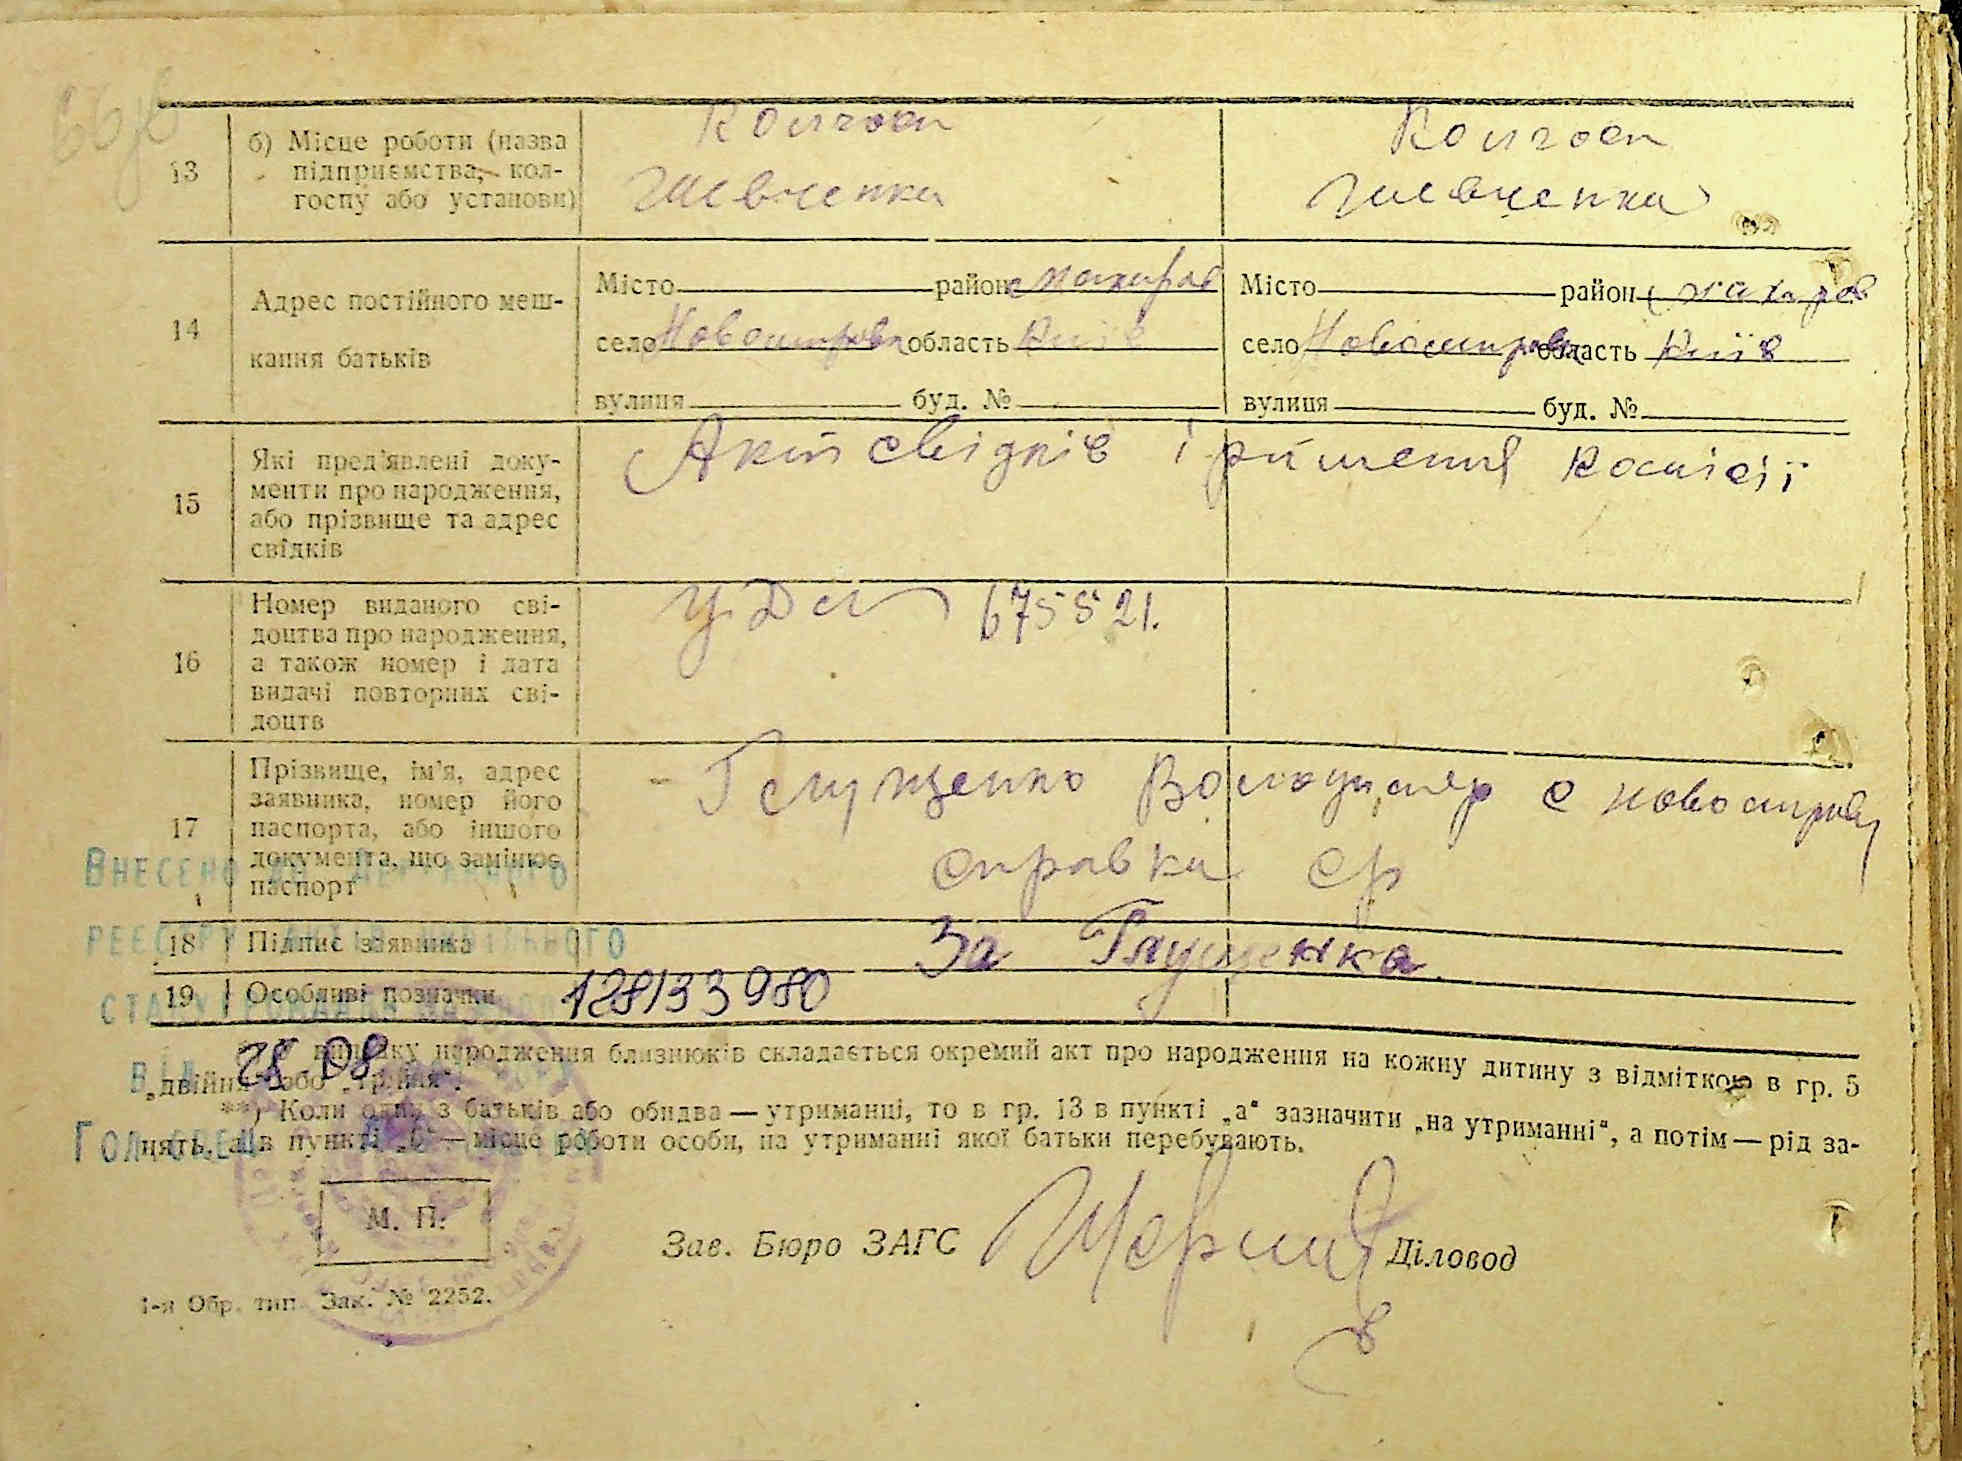 13
б) Місце роботи (назва
підприємства, кол-
госпу або установи)
Колгосп
Шевченка
Колгосп
Шевченка
14
Адрес постійного меш-
кання батьків
Місто район Макаров
село область Київ
вулиця буд. №
Місто район Макаров
село область Київ
вулиця буд. №
15
Які пред'явлені доку-
менти про народження,
або прізвище та адрес
свідків
Акт свідків і рішення комісії
16
Номер виданого сві-
доцтва про народження,
а також номер і дата
видачі повторних сві-
доцтв
675521.
17
Прізвище, ім'я, адрес
заявника, номер його
паспорта, або іншого
документа, що замінює
паспорт
Глущенко Володимир с
справка ср
18
Підпис заявника
За Глущенка.
19
Особливі позначки
128133980
Внесено до Державного
реєстру актів цивільного
стану громадян за
від 08
випадку народження близнюків складається окремий акт про народження на кожну дитину з відміткою в гр. 5
„двійня" або „трійня".
**) Коли один з батьків або обидва — утриманці, то в гр. 13 в пункті „а" зазначити „на утриманні", а потім — рід за-
нять, а в пункті „б" — місце роботи особи, на утриманні якої батьки перебувають.
М. П.
Зав. Бюро ЗАГС
Діловод
1-я Обр. тип. Зак. № 2252.